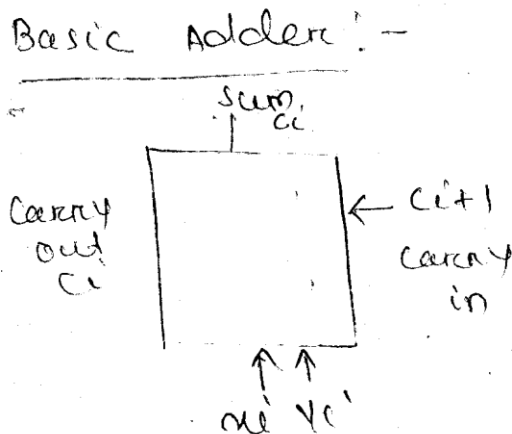 Basic Adder :-
Sum
Ci
Carry
out
Ci
← Ci+1
Carry
in
xi yi